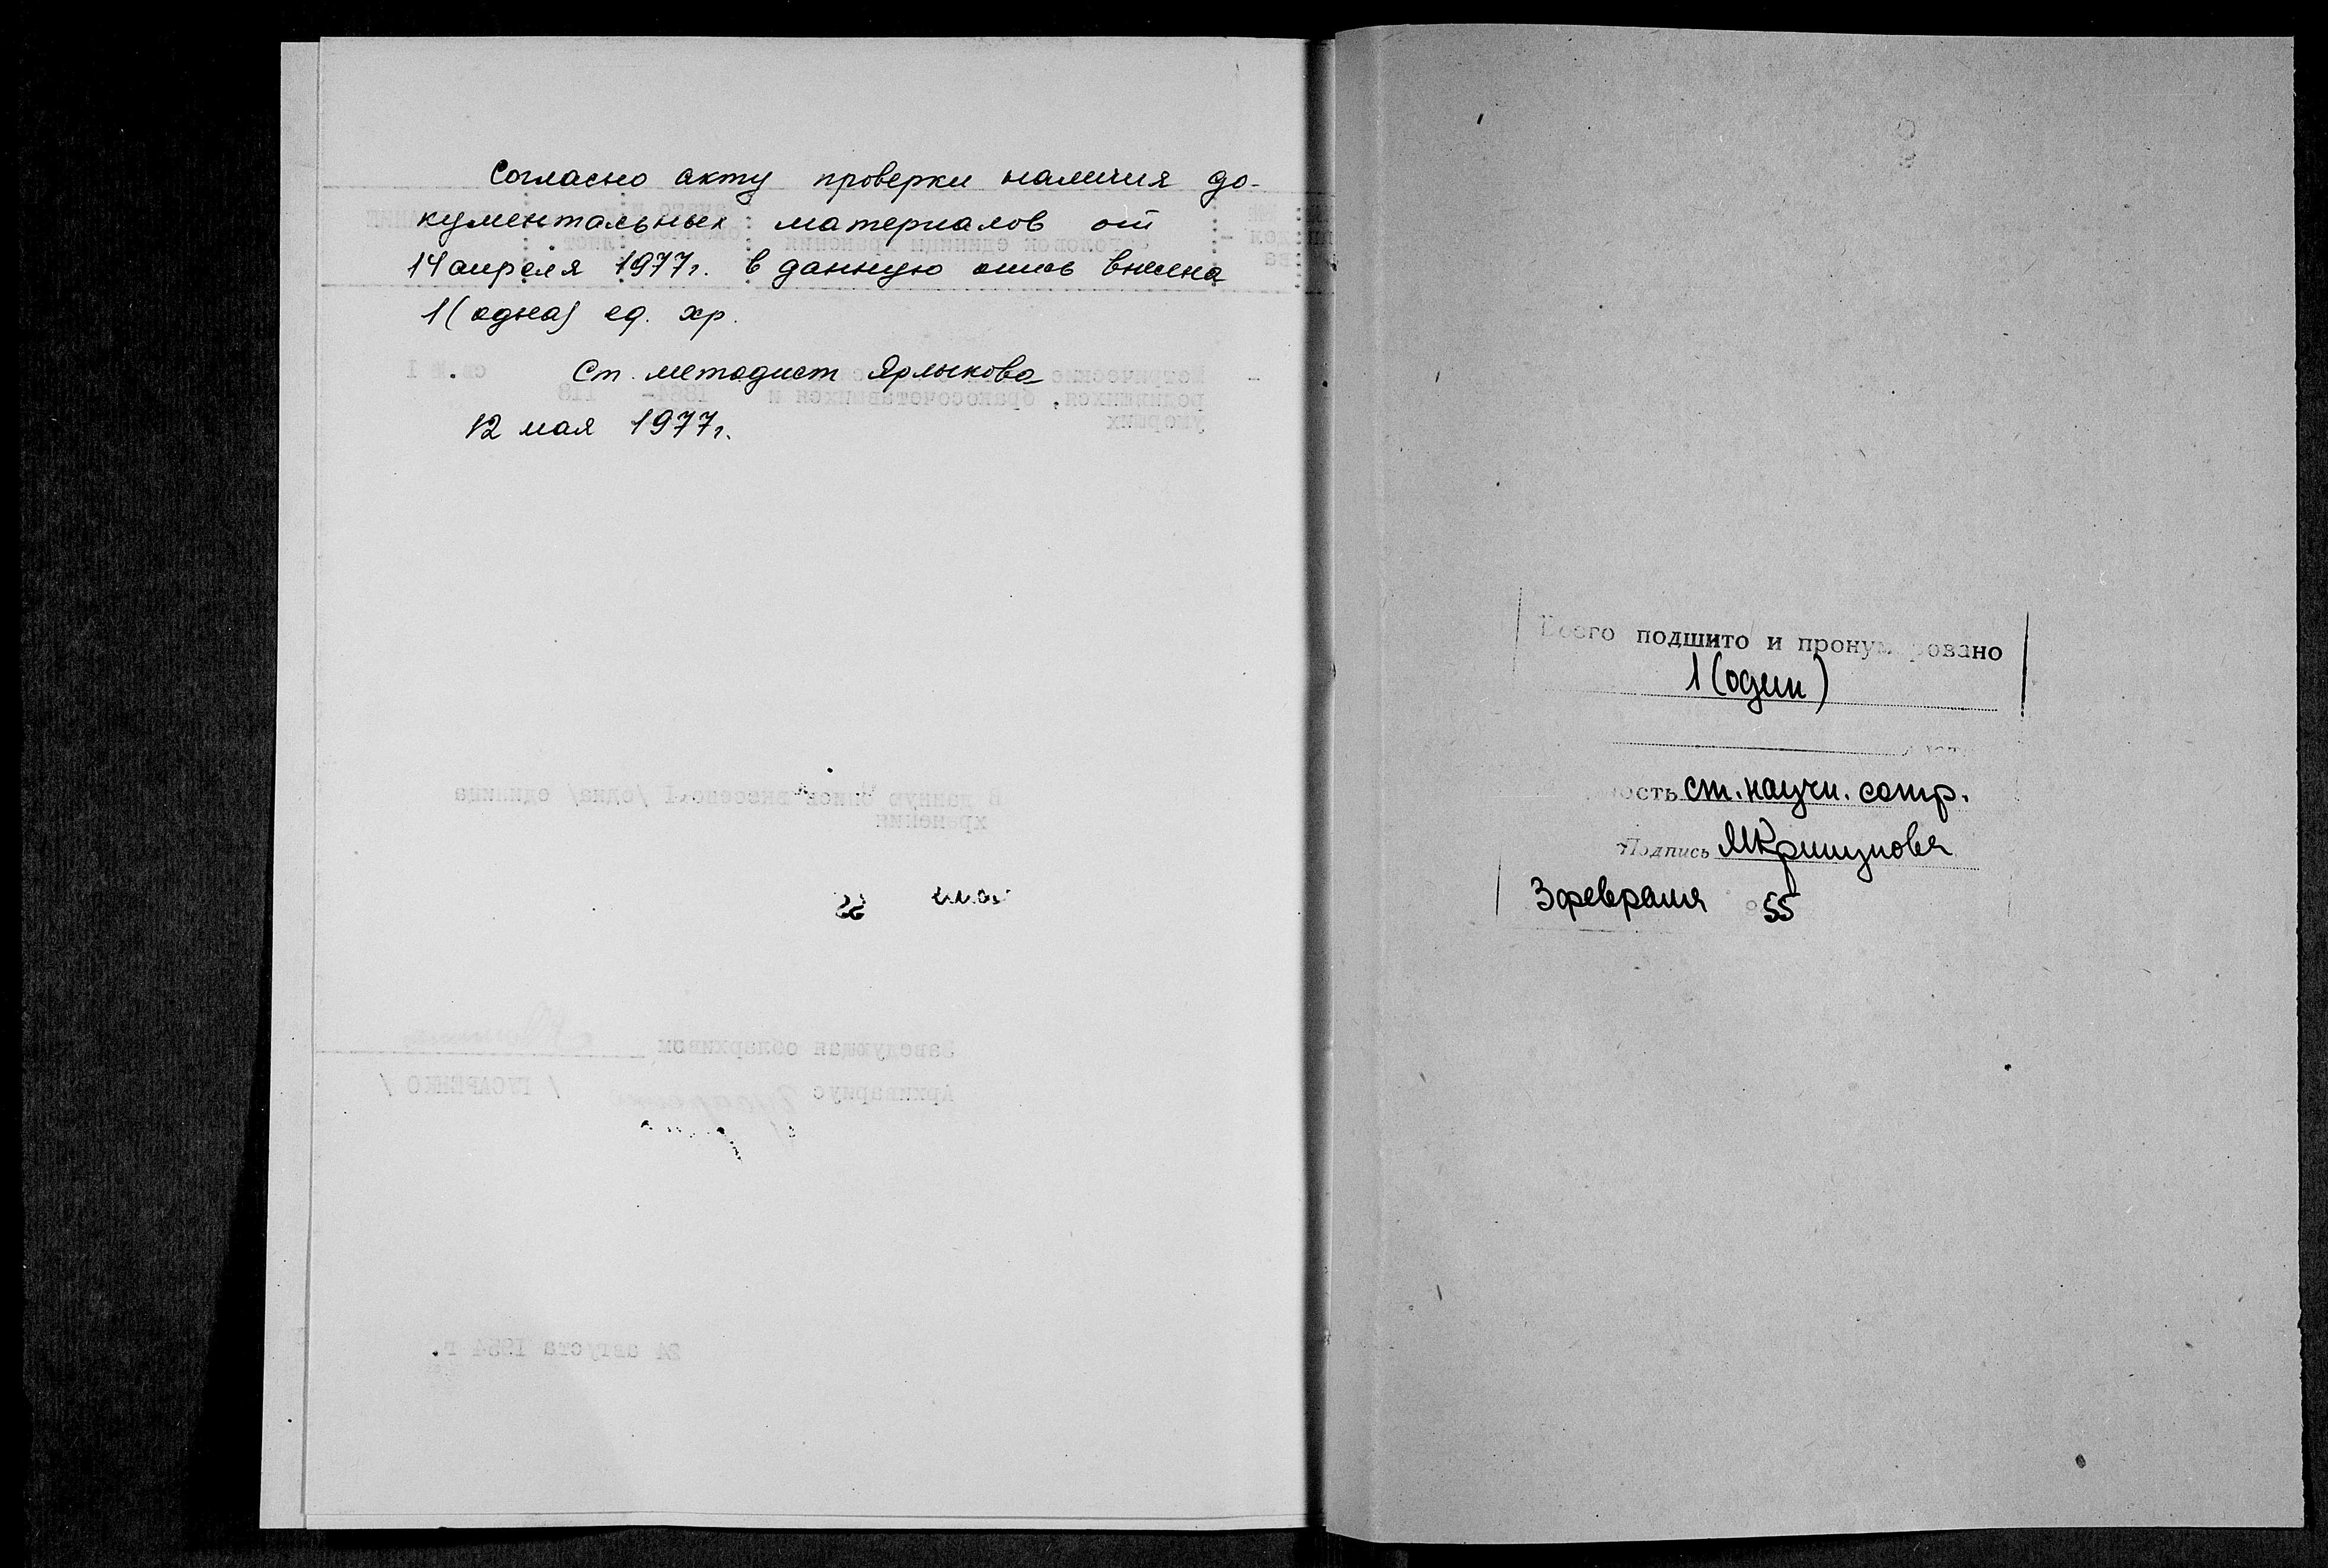 Согласно акту проверки наличия до-
кументальных материалов от
14 апреля 1977г. в данную опись внесена
1 (одна) ед. хр.
Ст. методист Ярлыкова
12 мая 1977г.
Всего подшито и пронумеровано
1 (один)
ость ст. научн. сотр.
Подпись
3 февраля 55